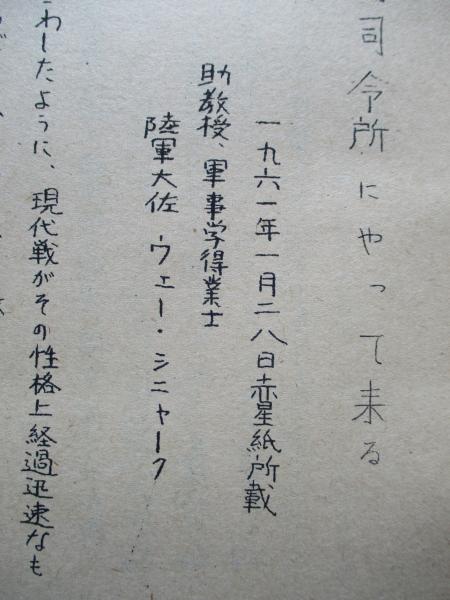 司令所にやって来る
一九六一年一月二八日赤星紙所載
助教授、軍事学得業士
陸軍大佐 ウェー・シニャーク
わしたように、現代戦がその性格上経過迅速なも